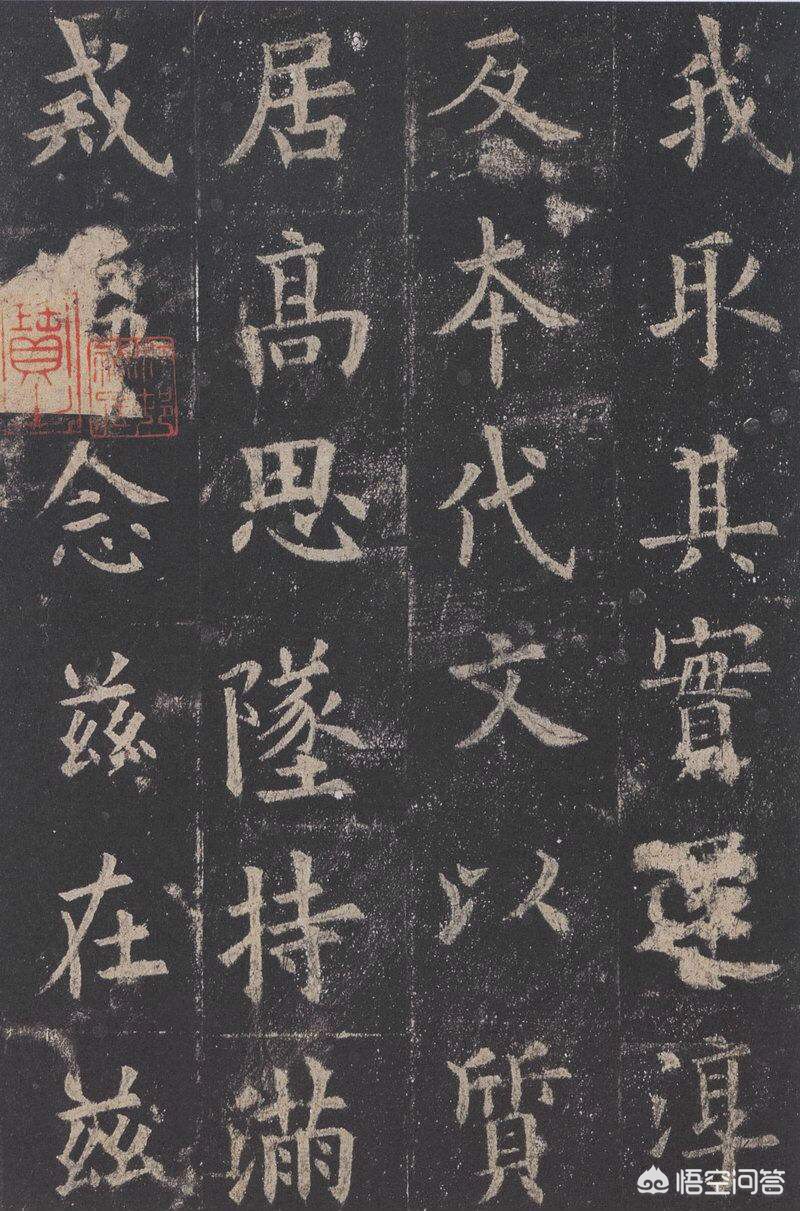 我取其實淳
反本代文以質
居高思墜持滿
戒念兹在兹
悟空问答